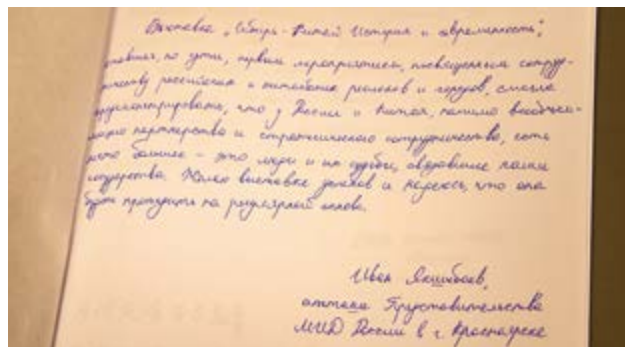 Выставка „Сибирь - Китай История и современность",
ставшая, по сути, первым мероприятием, посвященным сотруд-
ничеству российских и китайских регионов и городов, смогла
продемонстрировать, что у России и Китая, помимо всеобъем-
лющего партнерства и стратегического сотрудничества, есть
нечто большее - это люди и их судьбы, связавшие наши
государства. Желаю выставке успехов и надеюсь, что она
будет проходить на регулярной основе.
Иван
атташе Представительства
МИД России в г. Красноярске